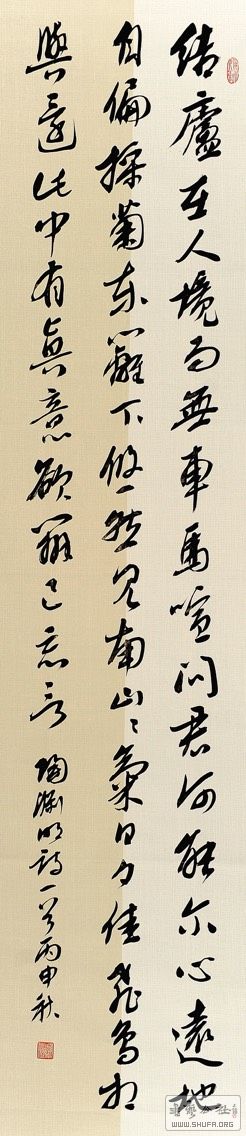 結廬在人境而無車馬喧問君何能尔心遠地
自偏採菊東籬下悠然見南山〻氣日夕佳飛鳥相
與還此中有真意欲辨已忘言
陶淵明詩一首丙申秋
書藝公社
WWW.SHUFA.ORG